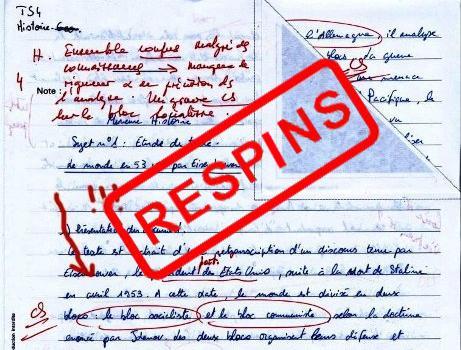 TS4
Histoire
H. Ensemble confus malgré des
connaissances → manque de
4
rigueur et de précision ds
Note :
l'analyse. Un grave CS
sur le bloc socialiste.
Histoire
Sujet n°1 : Etude de
le monde en 53 vu par Eisenhower
!!!
l'Allemagne, il analyse
blocs. La guerre
CS
menace
Pacifique, le
va
RESPINS
Présentation du document.
Ce texte est extrait d'une retranscription d'un discours tenu par
Eisenhower, le président des Etats Unis, suite à la mort de Staline
en avril 1953. A cette date, le monde est divisé en deux
CS
blocs : le bloc socialiste et le bloc communiste selon la doctrine
énoncée par Jdanov. Les deux blocs organisent leurs défense et